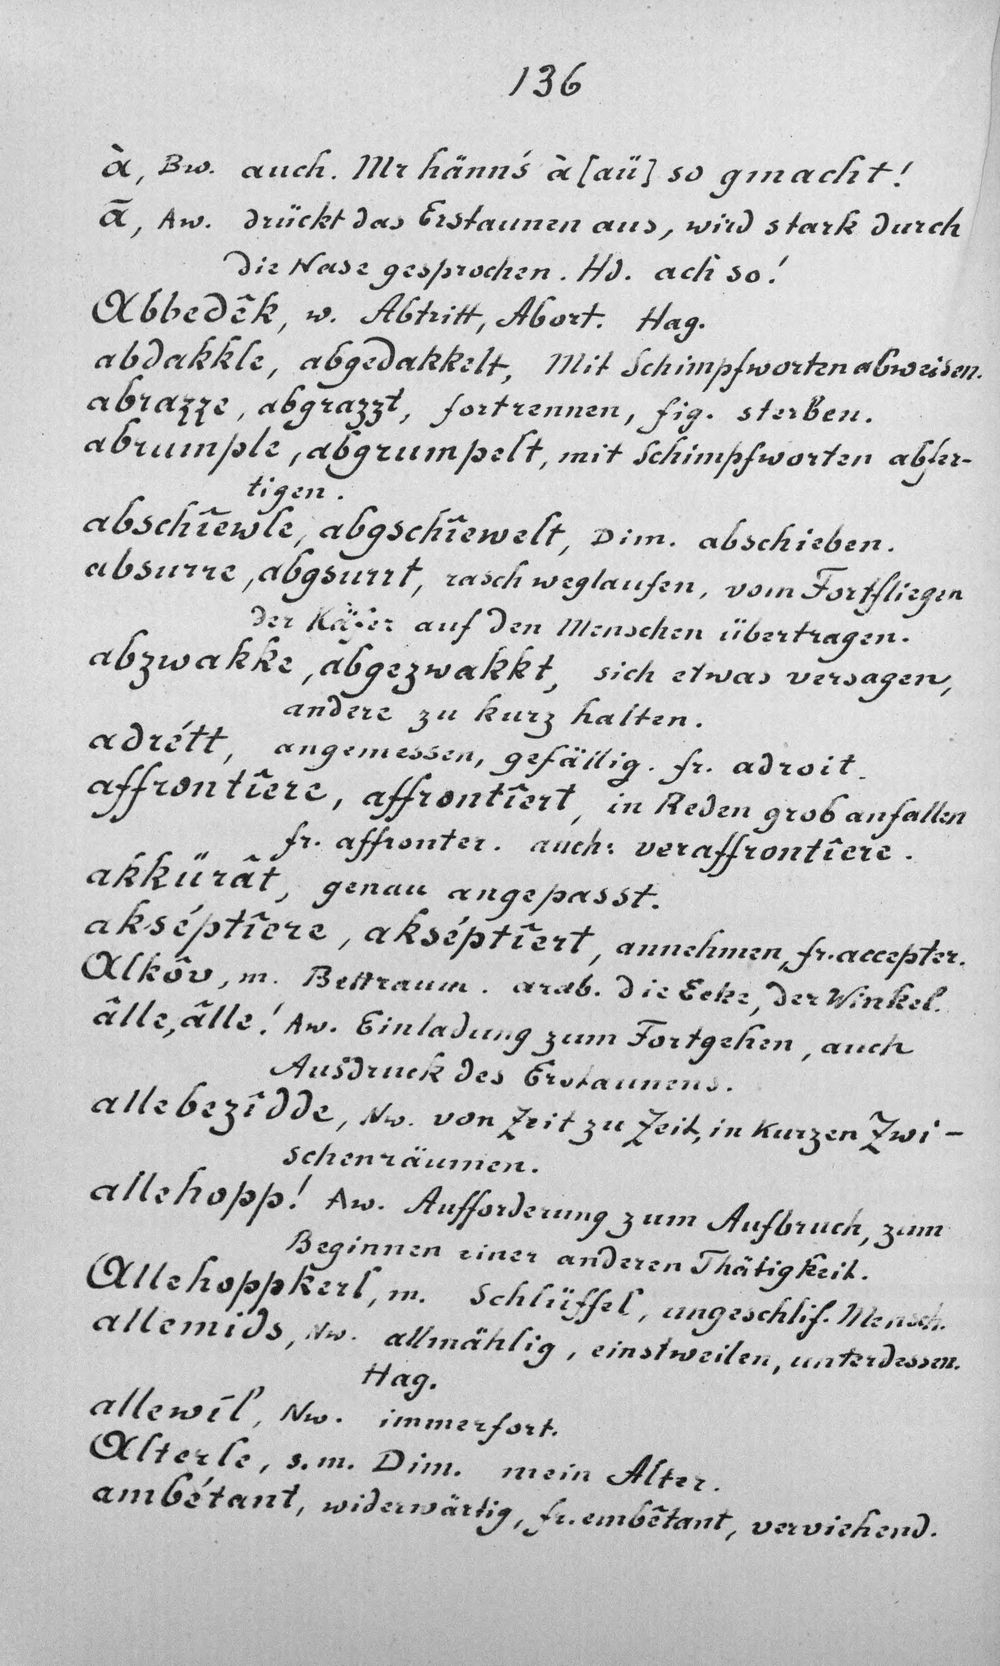 136
à, Bw. auch. Mr hänn's à [aü] so gmacht!
ā, Aw. drückt das Erstaunen aus, wird stark durch
die Nase gesprochen. Hd. ach so!
Abbedêk, w. Abtritt, Abort. Hag.
abdakkle, abgedakkelt, Mit Schimpfworten abweisen.
abrazze, abgrazzt, fortrennen, fig. sterben.
abrumple, abgrumpelt, mit Schimpfworten abfer-
tigen.
abschîewle, abgschîewelt, Dim. abschieben.
absurre, abgsurrt, rasch weglaufen, vom Fortfliegen
der Käfer auf den Menschen übertragen.
abzwakke, abgezwakkt, sich etwas versagen,
andere zu kurz halten.
adrétt, angemessen, gefällig. fr. adroit.
affrontîere, affrontîert, in Reden grob anfallen
fr. affronter. auch: veraffrontîere.
akkürât, genau angepasst.
akséptîere, akséptîert, annehmen, fr. accepter.
Alkôv, m. Bettraum. arab. die Ecke, der Winkel.
âlle, âlle! Aw. Einladung zum Fortgehen, auch
Ausdruck des Erstaunens.
allebezîdde, Nw. von Zeit zu Zeit, in kurzen Zwi-
schenräumen.
allehopp! Aw. Aufforderung zum Aufbruch, zum
Beginnen einer anderen Thätigkeit.
Allehoppkerl, m. Schlüffel, ungeschlif. Mensch.
allemids, Nw. allmählig, einstweilen, unterdessen.
Hag.
allewīl, Nw. immerfort.
Alterle, s.m. Dim. mein Alter.
ambétant, widerwärtig, fr. embêtant, verviehend.